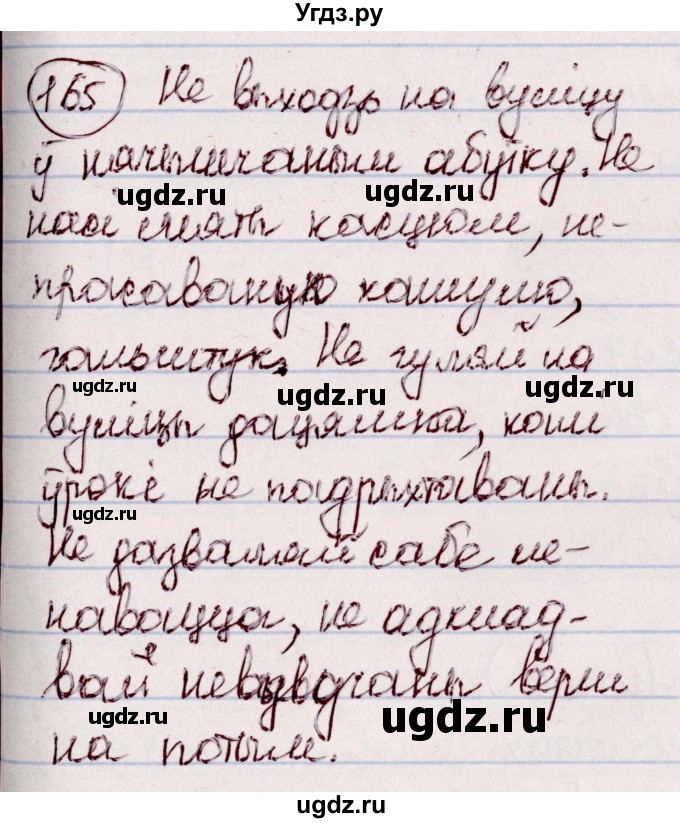 Угдз.ру
165 Не выходзь на вуліцу
ў нячышчаным абутку. Не
ugdz.ru ugdz.ru
касцюм, не-
прасаваную кашулю,
ugdz.ru ugdz.ru
гальштук. Не гуляй на
ugdz.ru ugdz.ru
вуліцы дацямна, калі
ўрокі не падрыхтаваны.
ugdz.ru
Не дазваляй сабе ле-
ugdz.ru
навацца, не адклад-
вай верш
ugdz.ru ugdz.ru
на потым.
ugdz.ru